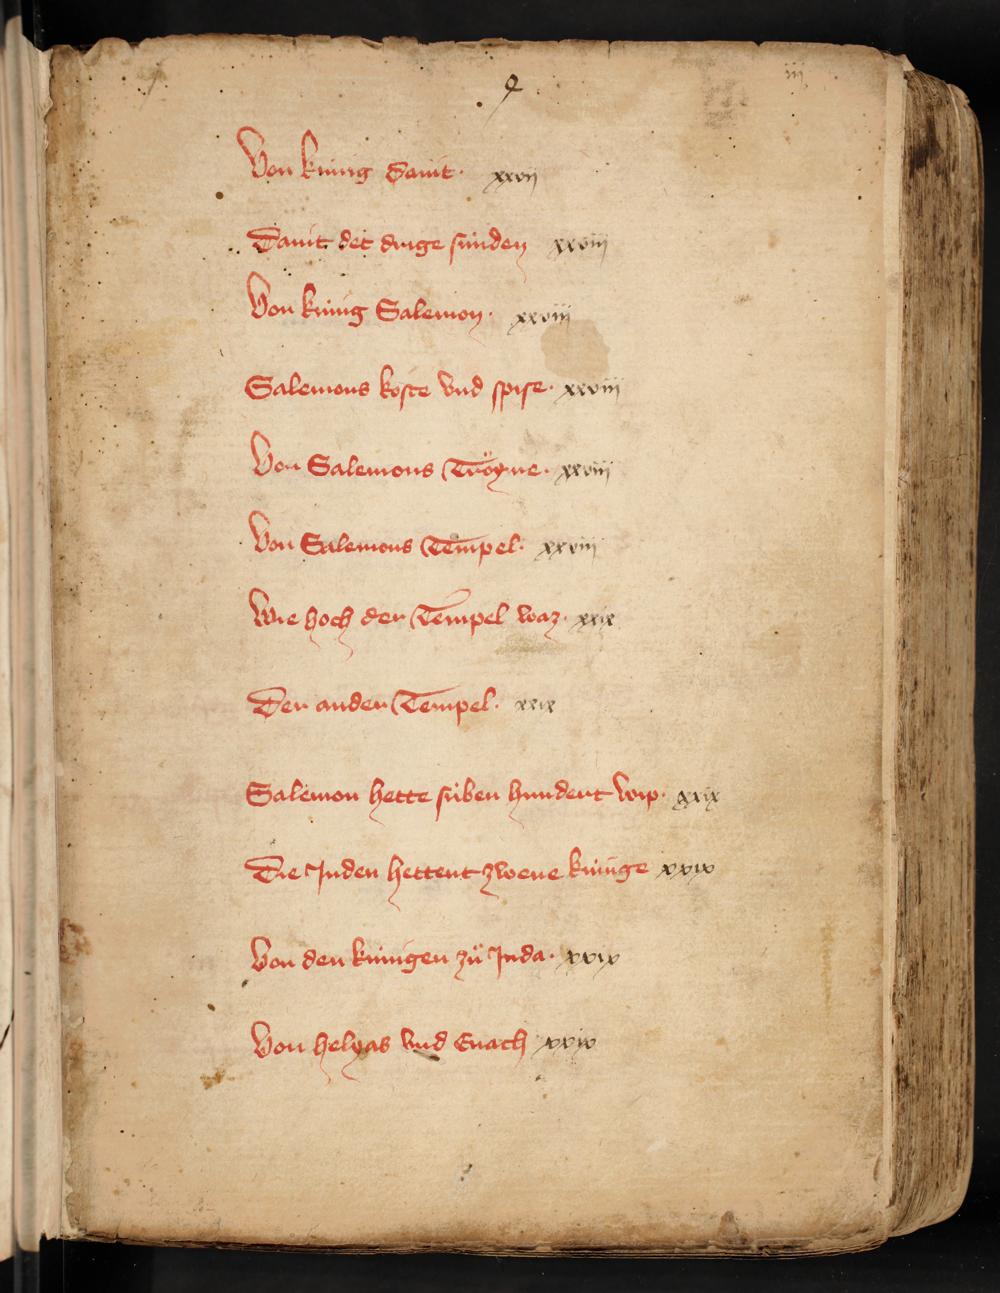 iij
Von kúnig Dauit · xxvij
Dauit det drige súnden xxviij
Von kúnig Salemon · xxviij
Salemons koste vnd spise · xxviij
Von Salemons · xxviij
Von Salemons Tempel · xxviij
Wie hoch der Tempel waz · xxix
Der ander Tempel · xxix
Salemon hette súben hundert wip · xxix
Die Juden hettent zwene kúnige xxix
Von den kúnigen zů Juda · xxix
Von helyas vnd Enach xxix